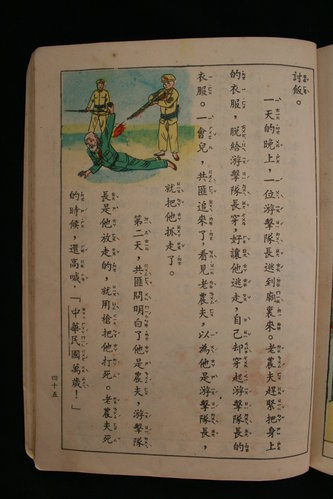 討飯。
一天的晚上，一位游擊隊長逃到廟裏來。老農夫趕緊把身上
的衣服，脫給游擊隊長穿，好讓他逃走，自己卻穿起游擊隊長的
衣服。一會兒，共匪追來了，看見老農夫，以為他是游擊隊長，
就把他抓走了。
第二天，共匪問明白了他是農夫，游擊隊
長是他放走的，就用槍把他打死。老農夫死
的時候，還高喊：「中華民國萬歲！」
四十五